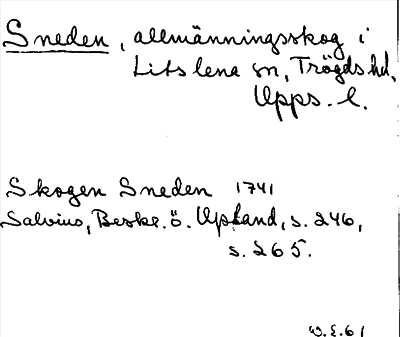 Sneden, allmänningsskog i
Litslena sn, Trögds hd,
Upps. l.
Skogen Sneden 1741
Salvius, Beskr. ö. Upland, s. 246,
s. 265.
W.E.61